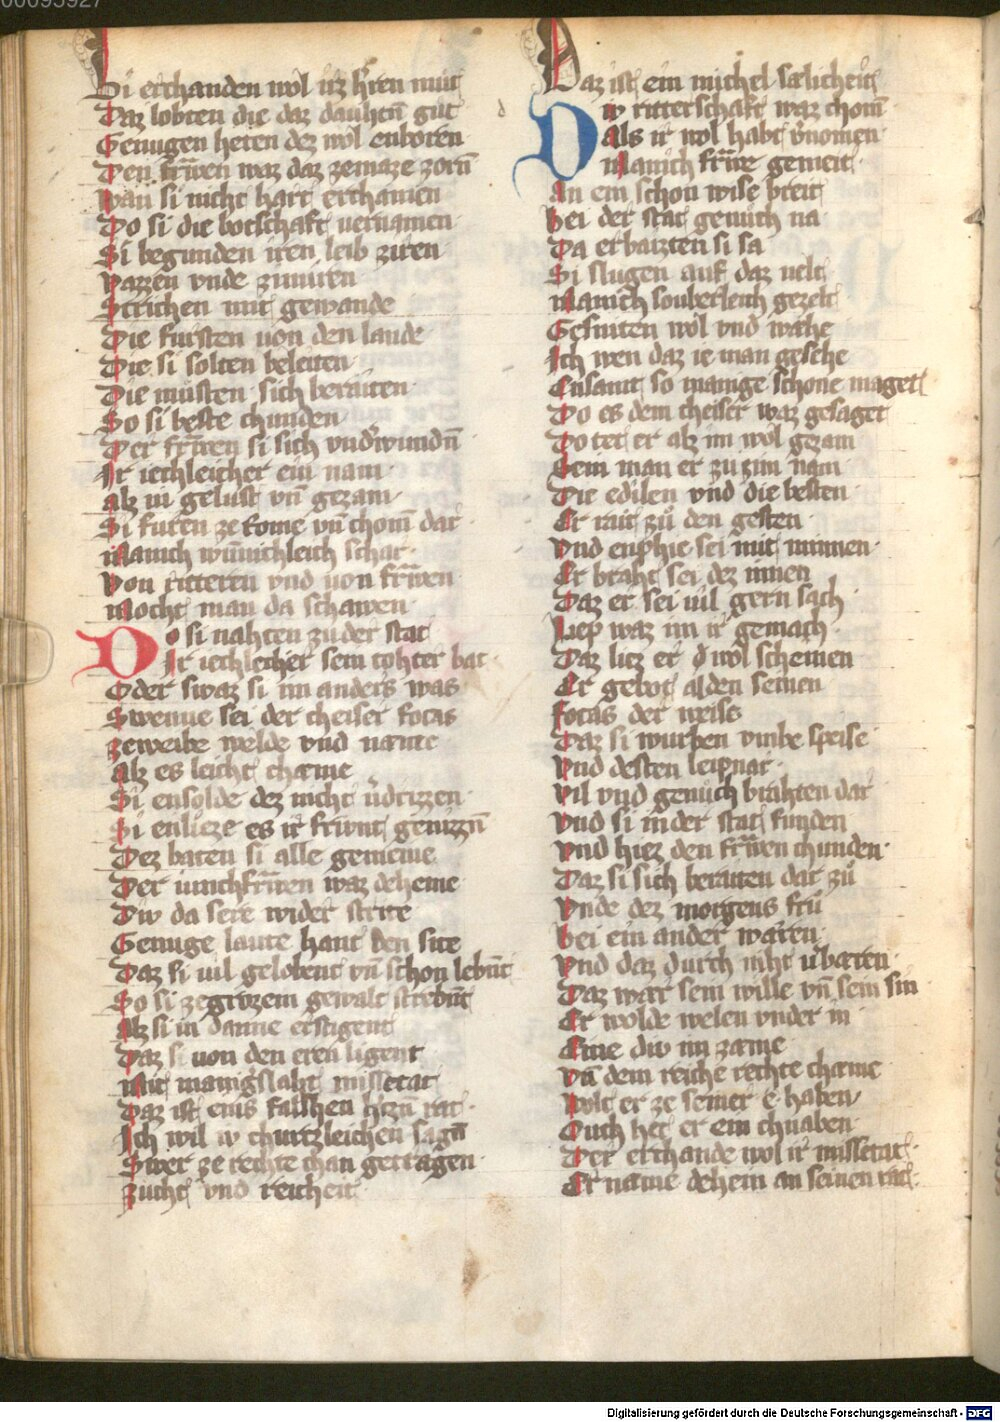 00095927
Di erchanden wol irz h'ren mut
Daz lobten die daz dauhten gut
Genugen heten dez wol enboren
Den frawen waz daz zemaze zorn
Wan si nicht hart erchamen
Do si die botschaft uernamen
Si begunden iren leib ziren
Vazzen vnde zimiren
Strichen mit gewande
Die fursten uon den lande
Die si solten beleiten
Die musten sich beraiten
So si beste chunden
Der frawen si sich vnd'wundn̄
Ir iechleicher ein nam
Alz in gelust vn̄ gezam
Si furen ze Rome vn̄ chom̄ dar
Manich wunnichleich schar
Von ritteren vnd uon frawen
Mocht man da schawen
Do si nahten zu der stat
Ir iechlecher sein tohter bat
Oder swaz si im anders was
Swenne sei der cheiser focas
Zeweibe welde vnd name
Alz es leicht chame
Si ensolde dez nicht u'drizzen
Si enlieze es ir friwnt genizzn̄
Dez baten si alle gemeine
Der iunchfrawen waz deheine
Diw da sere wider strite
Genuge laute hant den site
Daz si uil gelobent vn̄ schon lebn̄t
So si zegrozem gewalt strebn̄t
Alz si in danne erstigent
Daz si uon den eren ligent
Mit manigslaht missetat
Daz ist eins falschen h'tzn̄ rat
Ich wil iv churtzleichen sagn̄
Swer ze rechte chan getragen
Zucht vnd reicheit
Daz ist ein michel sælicheit
Div ritterschaft waz chom̄
Als ir wol habt u'nomen
Manich frawe gemeit
An ein schon wise breit
Bei der stat genuch na
Da erbaizten si sa
Si slugen auf daz uelt
Manich souberleich gezelt
Gesniten wol vnd wahe
Ich wen daz ie man gesehe
Ensamt so manige schone maget
Do es dem cheiser waz gesaget
Do tet er alz im wol gezam
Sein man er zu zim nam
Die edilen vnd die besten
Er rait zů den gesten
Vnd enphie sei mit minnen
Er braht sei dez innen
Daz er sei uil gern sach
Liep waz im ir gemach
Daz liez er d' wol scheinen
Er gebot alden seinen
Focas der weise
Daz si wurben vmbe speise
Vnd desten leipnar
Vil vnd genuch brahten dar
Vnd si in der stat funden
Vnd hiez den frawen chunden
Daz si sich beraiten dar zů
Vnde dez morgens frů
Bei ein ander waren
Vnd daz durch niht u'baren
Daz war sein wille vn̄ sein sin
Er wolde welen vnder in
Eine diw im zame
Vn̄ dem reiche rechte chame
Wolt er ze seiner e haben
Ouch het er ein chnaben
Der erchande wol ir missetat
Er name dehein an seinen rat
Digitalisierung gefördert durch die Deutsche Forschungsgemeinschaft - DFG